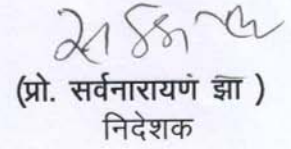 (प्रो. सर्वनारायणं झा )
निदेशक